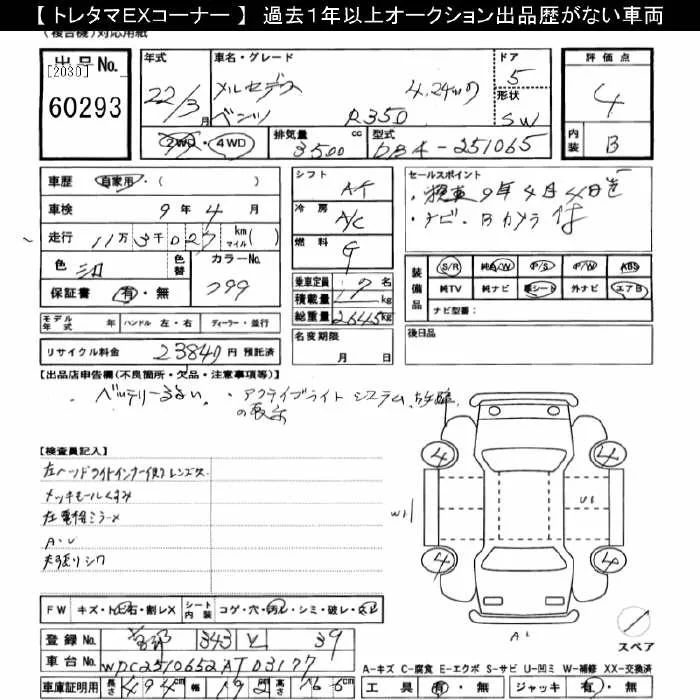 【 トレタマEXコーナー 】 過去1年以上オークション出品歴がない車両
(複合機)対応用紙
出品No. [2030] 60293
年式 22/3月
車名・グレード メルセデスベンツ 4.24WD R350
ドア 5
形状 SW
評価点 4
内装 B
2WD・4WD
排気量 3500 cc
型式 DBA-251065
車歴 自家用・( )
車検 9年4月
走行 11万3千027 km マイル( )
色
色替
カラーNo. 799
保証書 有・無
シフト AT
冷房 A/C
燃料 G
乗車定員 名
積載量 kg
総重量 2645 kg
名変期限 月 日
セールスポイント
・車検9年4月4日迄
・ナビ・Bカメラ付
装備品 S/R 純A/W P/S P/W ABS
純TV 純ナビ 革シート 外ナビ エアB
ナビ型番:
後日品
モデル年式 年 ハンドル 左・右 ディーラー・並行
リサイクル料金 23840 円 預託済
【出品店申告欄(不良箇所・欠品・注意事項等)】
・バッテリーよわい。・アクティブライトシステム故障の表示
【検査員記入】
左ヘッドライトインナー レンズ
メッキモールくすみ
左電格ミラー
A・U
シワ
W1 U1
4 4
4 4
A1
スペア
FW キズ・トビ石・割レX シート内装 コゲ・穴・汚レ・シミ・破レ・スレ
登録No. 343 39
車台No. WDC2510652A103177
車庫証明用 長さ 494 cm 幅 192 高さ 166 cm
A-キズ C-腐食 E-エクボ S-サビ U-凹ミ W-補修 XX-交換済
工具 有・無 ジャッキ 有・無